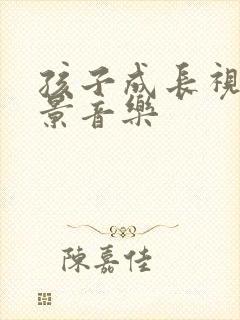 孩子成長視
景音樂
陳嘉佳